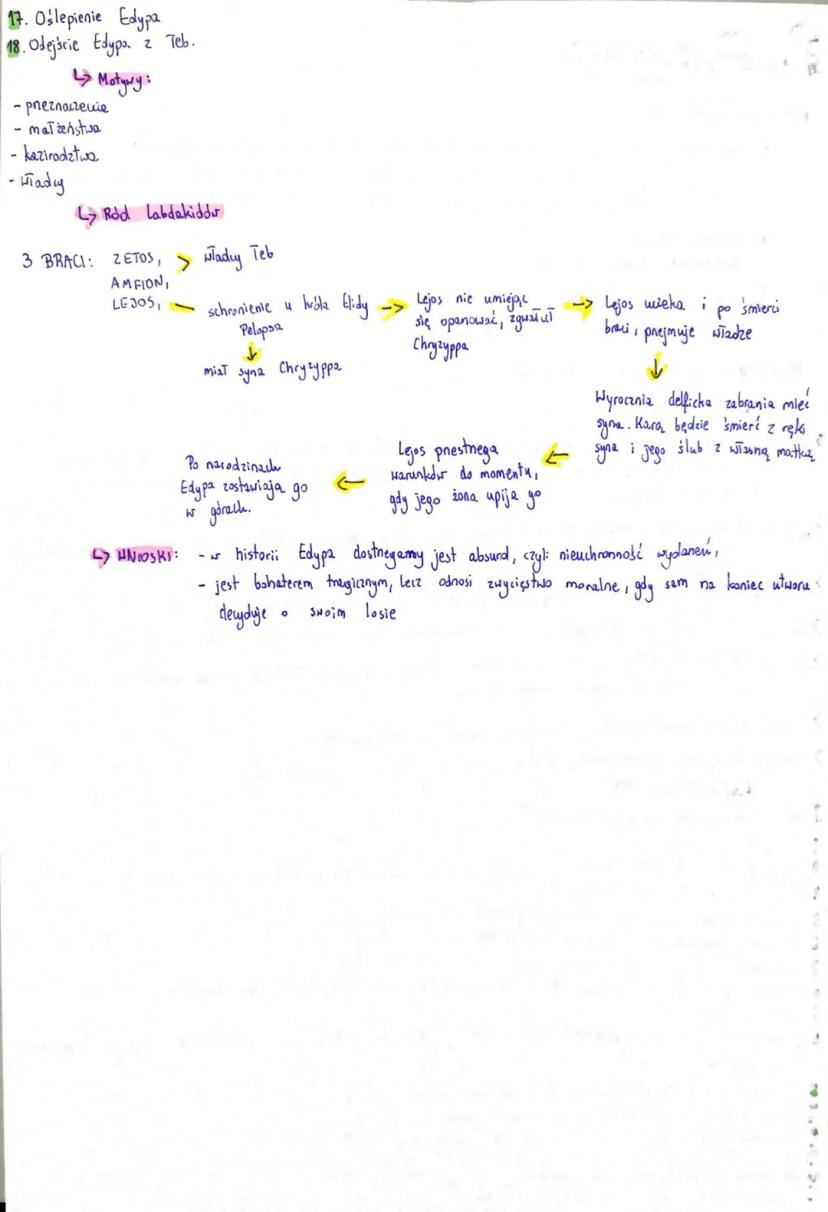 17. Oślepienie Edypa
18. Odejście Edypa z Teb.
↳ Motywy:
- przeznaczenie
- małżeństwa
- kazirodztwa
- władzy
↳ Ród Labdakidów
3 BRACI: ZETOS, > władcy Teb
AMFION,
LEJOS, — schronienie u króla Elidy
Pelopsa
↓
miał syna Chryzyppa
→ Lejos nie umiejąc
się opanować, zgwałcił
Chryzyppa
→ Lejos ucieka i po śmierci
braci, przejmuje władze
↓
Wyrocznia delficka zabrania mieć
syna. Karą będzie śmierć z ręki
syna i jego ślub z własną matką
← Lejos przestrzega
warunków do momentu,
gdy jego żona upija go
← Po narodzinach
Edypa zostawiają go
w górach.
↳ WNIOSKI: - w historii Edypa dostrzegamy jest absurd, czyli nieuchronność wydarzeń,
- jest bohaterem tragicznym, lecz odnosi zwycięstwo moralne, gdy sam na koniec utworu
decyduje o swoim losie